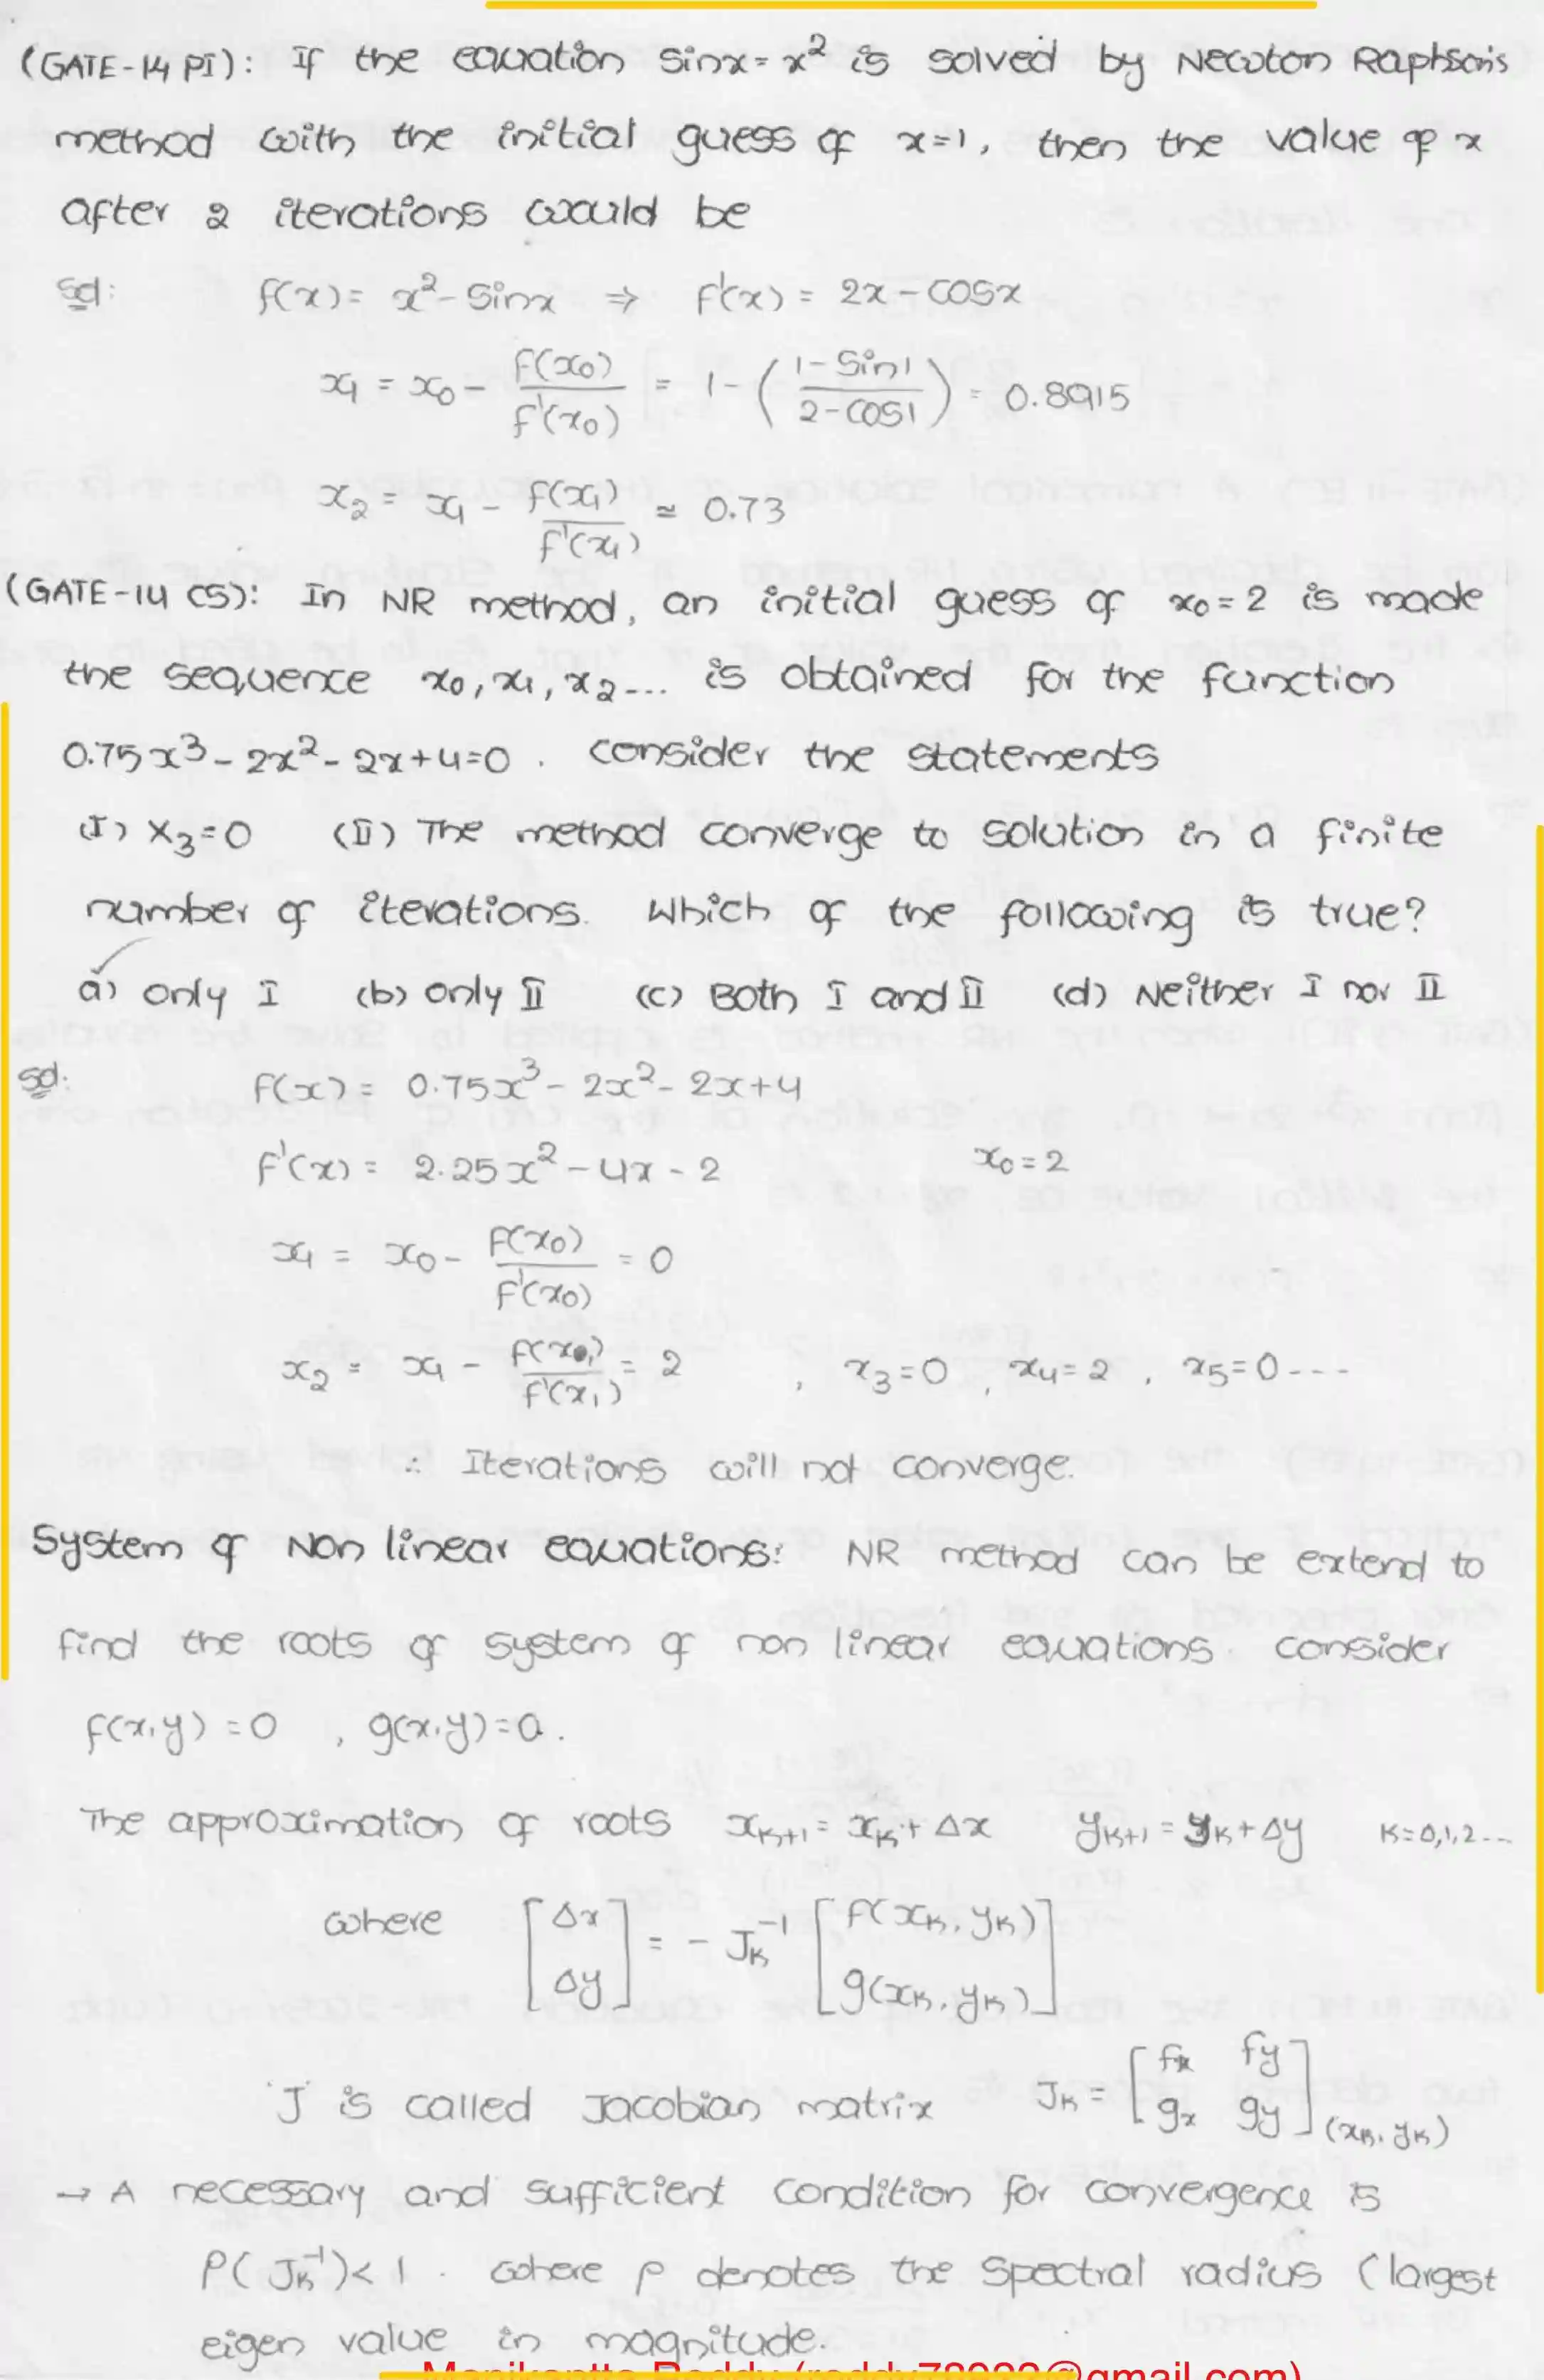 (GATE-14 PI): If the equation Sinx = x² is solved by Newton Raphson's
method with the initial guess of x=1, then the value of x
after 2 iterations would be
Sol: f(x) = x² - Sinx ⇒ f'(x) = 2x - cosx
x₁ = x₀ - f(x₀)/f'(x₀) = 1 - ((1-Sin1)/(2-cos1)) = 0.8915
x₂ = x₁ - f(x₁)/f'(x₁) ≃ 0.73
(GATE-14 CS): In NR method, an initial guess of x₀ = 2 is made
the sequence x₀, x₁, x₂--- is obtained for the function
0.75x³ - 2x² - 2x + 4 = 0. consider the statements
(I) X₃=0 (II) The method converge to solution in a finite
number of iterations. Which of the following is true?
a) only I (b) only II (c) Both I and II (d) Neither I nor II
Sol: f(x) = 0.75x³ - 2x² - 2x + 4
f'(x) = 2.25x² - 4x - 2 x₀ = 2
x₁ = x₀ - f(x₀)/f'(x₀) = 0
x₂ = x₁ - f(x₁)/f'(x₁) = 2 , x₃=0 , x₄=2 , x₅=0---
∴ Iterations will not converge.
System of Non linear equations: NR method can be extend to
find the roots of system of non linear equations. consider
f(x,y) = 0 , g(x,y) = 0.
The approximation of roots xₖ₊₁ = xₖ + Δx yₖ₊₁ = yₖ + Δy K=0,1,2---
where [Δx Δy] = - Jₖ⁻¹ [f(xₖ, yₖ) g(xₖ, yₖ)]
'J' is called Jacobian matrix Jₖ = [fx fy gx gy](xₖ, yₖ)
→ A necessary and sufficient condition for convergence is
ρ(Jₖ⁻¹) < 1. where ρ denotes the Spectral radius (largest
eigen value in magnitude.